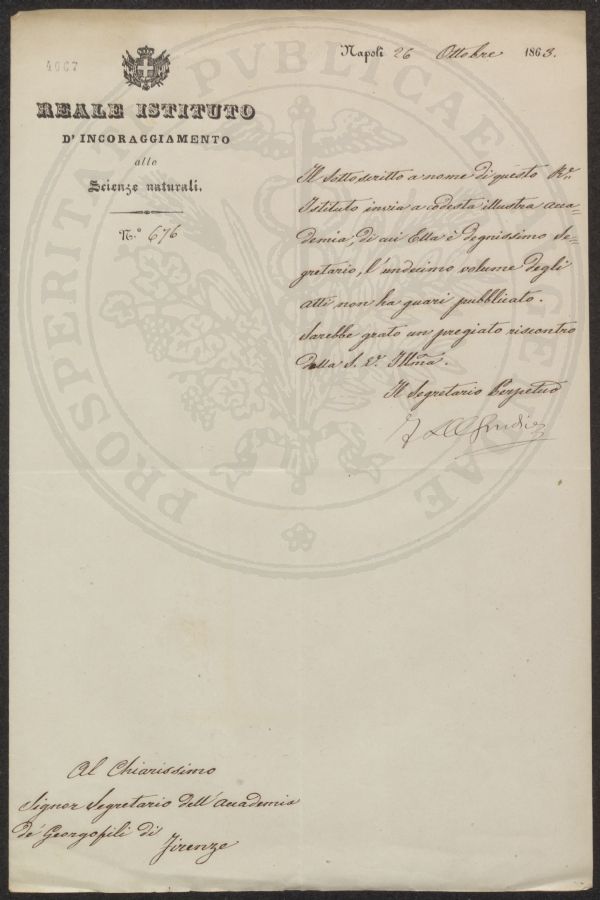 4667
Napoli 26 Ottobre 1863.
REALE ISTITUTO
D'INCORAGGIAMENTO
alle
Scienze naturali.
N.º 676
Il sottoscritto a nome di questo R.º
Istituto invia a codesta illustra Acca=
demia, di cui Ella è degnissimo Se=
gretario, l'undecimo volume degli
Atti non ha guari pubblicato.
Sarebbe grato un pregiato riscontro
della S. V. Illma.
Il Segretario Perpetuo
Al Chiarissimo
Signor Segretario dell'Accademia
de' Georgofili di
Firenze
PROSPERITATI PUBLICAE AUGENDAE